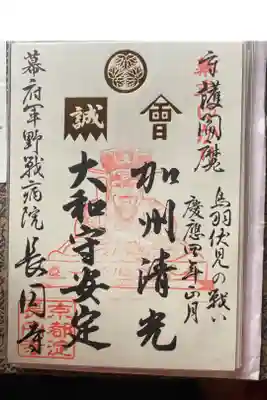 守護閻魔
鳥羽伏見の戦い
慶應四年正月
會
加州清光
誠
大和守安定
幕府軍野戦病院 長円寺
京都淀